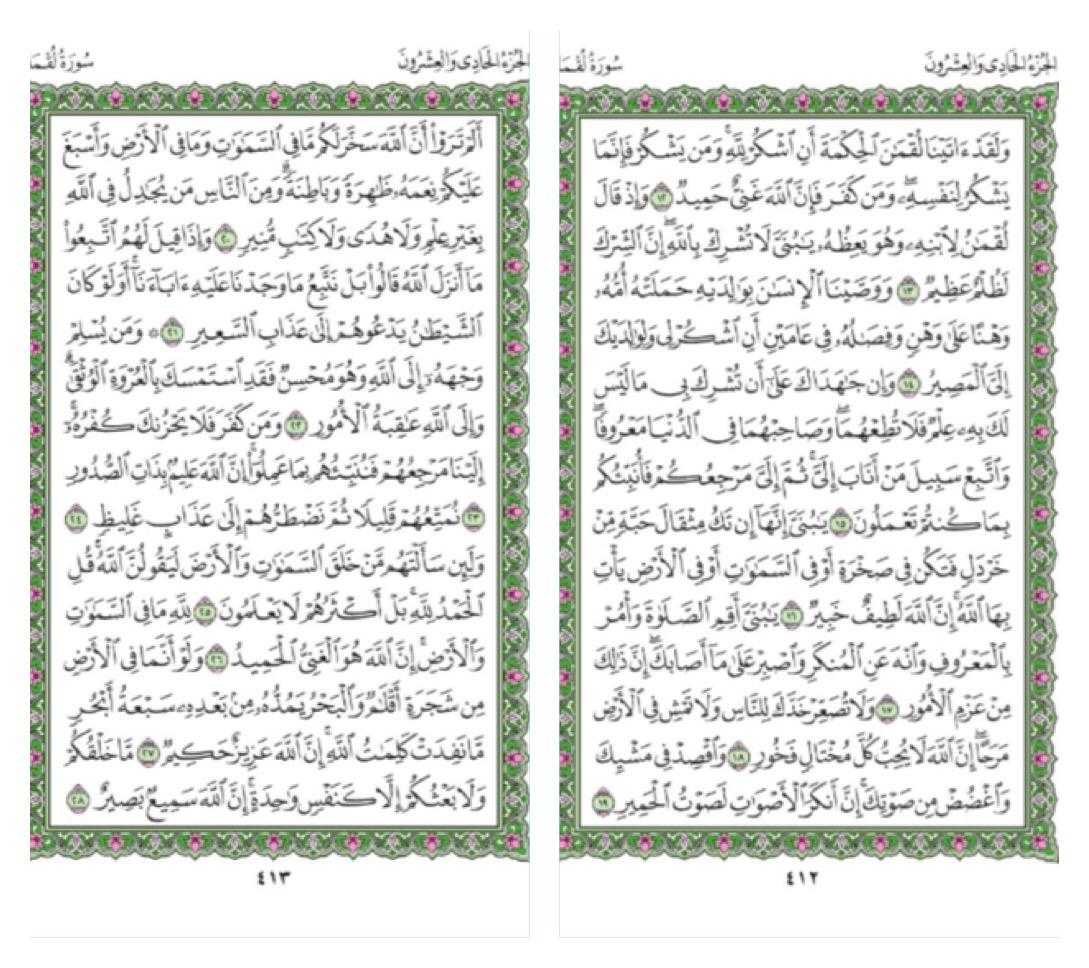 الجُزْءُ الحَادِي وَالعِشْرُونَ سُورَةُ لُقْمَـ
وَلَقَدْ ءَاتَيْنَا لُقْمَٰنَ ٱلْحِكْمَةَ أَنِ ٱشْكُرْ لِلَّهِ ۚ وَمَن يَشْكُرْ فَإِنَّمَا
يَشْكُرُ لِنَفْسِهِۦ ۖ وَمَن كَفَرَ فَإِنَّ ٱللَّهَ غَنِىٌّ حَمِيدٌ ١٢ وَإِذْ قَالَ
لُقْمَٰنُ لِٱبْنِهِۦ وَهُوَ يَعِظُهُۥ يَٰبُنَىَّ لَا تُشْرِكْ بِٱللَّهِ ۖ إِنَّ ٱلشِّرْكَ
لَظُلْمٌ عَظِيمٌ ١٣ وَوَصَّيْنَا ٱلْإِنسَٰنَ بِوَٰلِدَيْهِ حَمَلَتْهُ أُمُّهُۥ
وَهْنًا عَلَىٰ وَهْنٍ وَفِصَٰلُهُۥ فِى عَامَيْنِ أَنِ ٱشْكُرْ لِى وَلِوَٰلِدَيْكَ
إِلَىَّ ٱلْمَصِيرُ ١٤ وَإِن جَٰهَدَاكَ عَلَىٰٓ أَن تُشْرِكَ بِى مَا لَيْسَ
لَكَ بِهِۦ عِلْمٌ فَلَا تُطِعْهُمَا ۖ وَصَاحِبْهُمَا فِى ٱلدُّنْيَا مَعْرُوفًا ۖ
وَٱتَّبِعْ سَبِيلَ مَنْ أَنَابَ إِلَىَّ ۚ ثُمَّ إِلَىَّ مَرْجِعُكُمْ فَأُنَبِّئُكُم
بِمَا كُنتُمْ تَعْمَلُونَ ١٥ يَٰبُنَىَّ إِنَّهَآ إِن تَكُ مِثْقَالَ حَبَّةٍ مِّنْ
خَرْدَلٍ فَتَكُن فِى صَخْرَةٍ أَوْ فِى ٱلسَّمَٰوَٰتِ أَوْ فِى ٱلْأَرْضِ يَأْتِ
بِهَا ٱللَّهُ ۚ إِنَّ ٱللَّهَ لَطِيفٌ خَبِيرٌ ١٦ يَٰبُنَىَّ أَقِمِ ٱلصَّلَوٰةَ وَأْمُرْ
بِٱلْمَعْرُوفِ وَٱنْهَ عَنِ ٱلْمُنكَرِ وَٱصْبِرْ عَلَىٰ مَآ أَصَابَكَ ۖ إِنَّ ذَٰلِكَ
مِنْ عَزْمِ ٱلْأُمُورِ ١٧ وَلَا تُصَعِّرْ خَدَّكَ لِلنَّاسِ وَلَا تَمْشِ فِى ٱلْأَرْضِ
مَرَحًا ۖ إِنَّ ٱللَّهَ لَا يُحِبُّ كُلَّ مُخْتَالٍ فَخُورٍ ١٨ وَٱقْصِدْ فِى مَشْيِكَ
وَٱغْضُضْ مِن صَوْتِكَ ۚ إِنَّ أَنكَرَ ٱلْأَصْوَٰتِ لَصَوْتُ ٱلْحَمِيرِ ١٩
٤١٢
الجُزْءُ الحَادِي وَالعِشْرُونَ سُورَةُ لُقْمَـ
أَلَمْ تَرَوْا۟ أَنَّ ٱللَّهَ سَخَّرَ لَكُم مَّا فِى ٱلسَّمَٰوَٰتِ وَمَا فِى ٱلْأَرْضِ وَأَسْبَغَ
عَلَيْكُمْ نِعَمَهُۥ ظَٰهِرَةً وَبَاطِنَةً ۗ وَمِنَ ٱلنَّاسِ مَن يُجَٰدِلُ فِى ٱللَّهِ
بِغَيْرِ عِلْمٍ وَلَا هُدًى وَلَا كِتَٰبٍ مُّنِيرٍ ٢٠ وَإِذَا قِيلَ لَهُمُ ٱتَّبِعُوا۟
مَآ أَنزَلَ ٱللَّهُ قَالُوا۟ بَلْ نَتَّبِعُ مَا وَجَدْنَا عَلَيْهِ ءَابَآءَنَآ ۚ أَوَلَوْ كَانَ
ٱلشَّيْطَٰنُ يَدْعُوهُمْ إِلَىٰ عَذَابِ ٱلسَّعِيرِ ٢١ ۞ وَمَن يُسْلِمْ
وَجْهَهُۥٓ إِلَى ٱللَّهِ وَهُوَ مُحْسِنٌ فَقَدِ ٱسْتَمْسَكَ بِٱلْعُرْوَةِ ٱلْوُثْقَىٰ ۗ
وَإِلَى ٱللَّهِ عَٰقِبَةُ ٱلْأُمُورِ ٢٢ وَمَن كَفَرَ فَلَا يَحْزُنكَ كُفْرُهُۥٓ ۚ
إِلَيْنَا مَرْجِعُهُمْ فَنُنَبِّئُهُم بِمَا عَمِلُوٓا۟ ۚ إِنَّ ٱللَّهَ عَلِيمٌۢ بِذَاتِ ٱلصُّدُورِ
٢٣ نُمَتِّعُهُمْ قَلِيلًا ثُمَّ نَضْطَرُّهُمْ إِلَىٰ عَذَابٍ غَلِيظٍ ٢٤
وَلَئِن سَأَلْتَهُم مَّنْ خَلَقَ ٱلسَّمَٰوَٰتِ وَٱلْأَرْضَ لَيَقُولُنَّ ٱللَّهُ ۚ قُلِ
ٱلْحَمْدُ لِلَّهِ ۚ بَلْ أَكْثَرُهُمْ لَا يَعْلَمُونَ ٢٥ لِلَّهِ مَا فِى ٱلسَّمَٰوَٰتِ
وَٱلْأَرْضِ ۚ إِنَّ ٱللَّهَ هُوَ ٱلْغَنِىُّ ٱلْحَمِيدُ ٢٦ وَلَوْ أَنَّمَا فِى ٱلْأَرْضِ
مِن شَجَرَةٍ أَقْلَٰمٌ وَٱلْبَحْرُ يَمُدُّهُۥ مِنۢ بَعْدِهِۦ سَبْعَةُ أَبْحُرٍ
مَّا نَفِدَتْ كَلِمَٰتُ ٱللَّهِ ۗ إِنَّ ٱللَّهَ عَزِيزٌ حَكِيمٌ ٢٧ مَّا خَلْقُكُمْ
وَلَا بَعْثُكُمْ إِلَّا كَنَفْسٍ وَٰحِدَةٍ ۗ إِنَّ ٱللَّهَ سَمِيعٌۢ بَصِيرٌ ٢٨
٤١٣